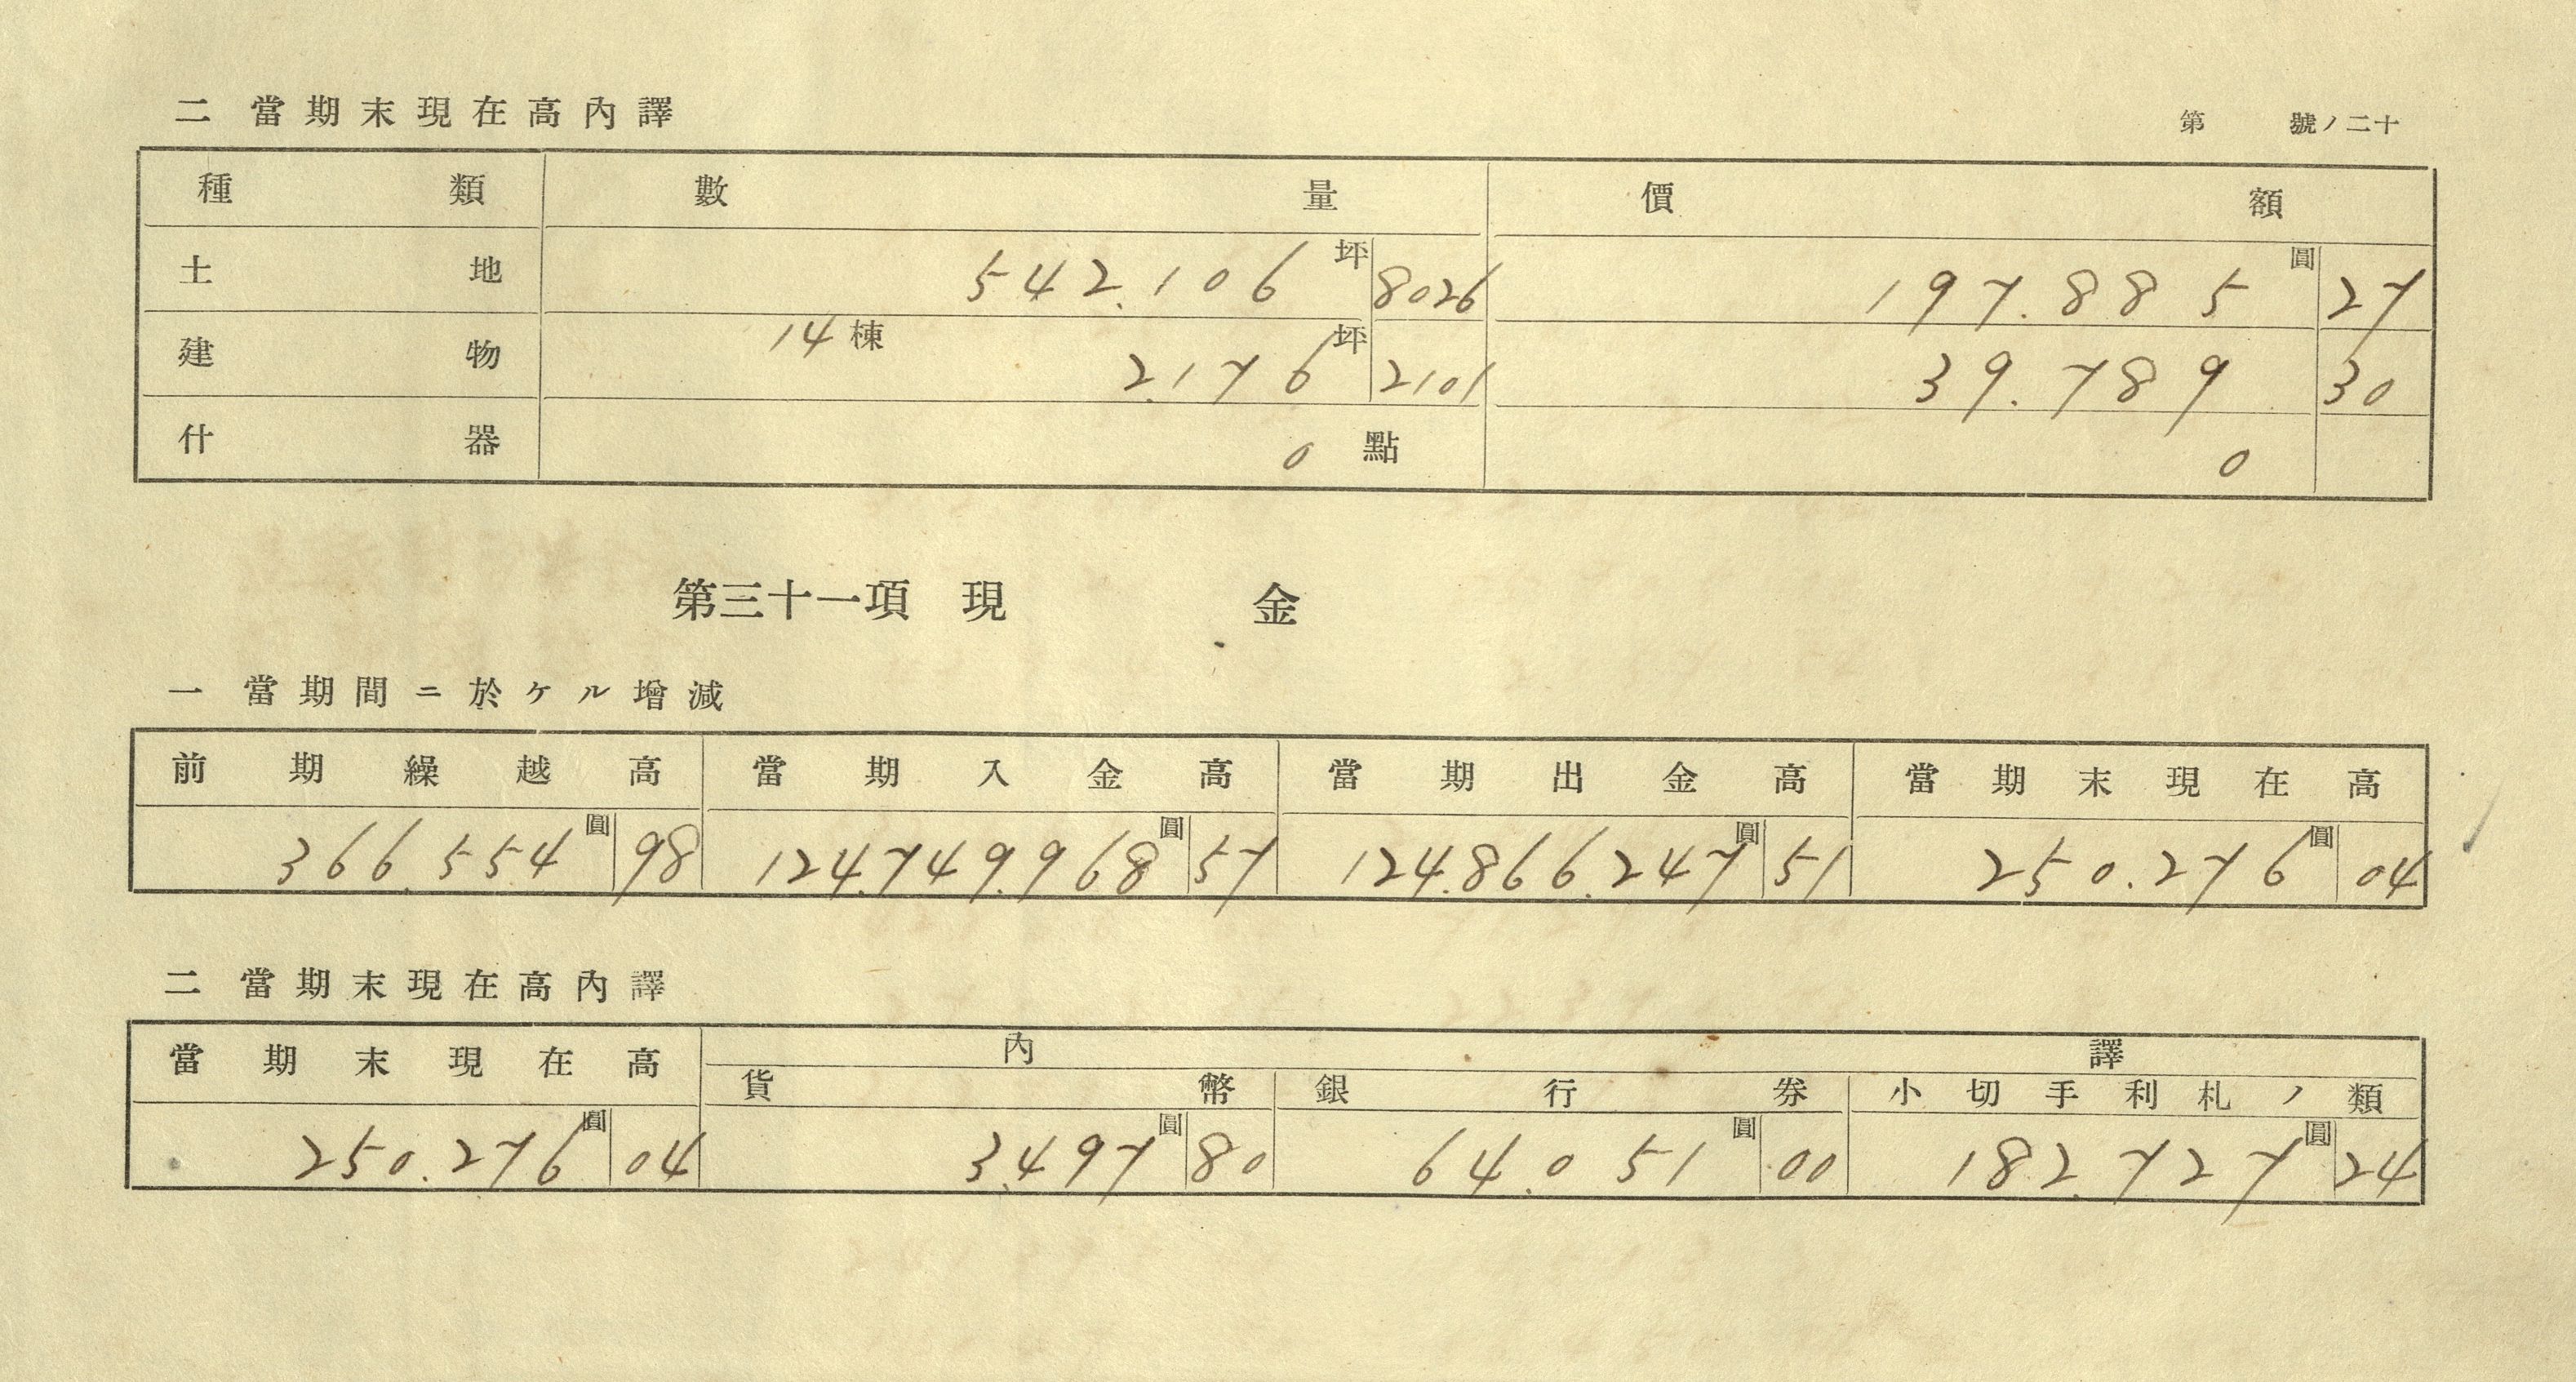 二 當期末現在高內譯
第 號ノ二十
種類 數量 價額
土地 542.106坪8026 197.885圓27
建物 14棟 2.176坪2101 39.789 30
什器 0點 0
第三十一項 現金
一 當期間ニ於ケル增減
前期繰越高 當期入金高 當期出金高 當期末現在高
366.554圓98 124.749.968圓57 124.866.247圓51 250.276圓04
二 當期末現在高內譯
當期末現在高 內譯
貨幣 銀行券 小切手利札ノ類
250.276圓04 3.497圓80 64.051圓00 182.727圓24